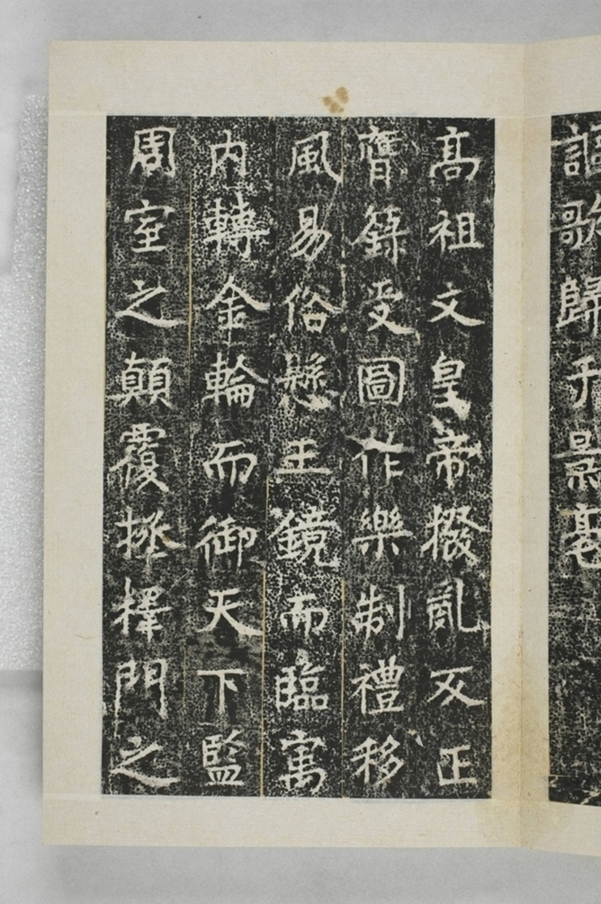 謳歌歸乎景亳
高祖文皇帝撥亂反正
膺錄受圖作樂制禮移
風易俗懸玉鏡而臨寓
內轉金輪而御天下監
周室之顛覆拯釋門之